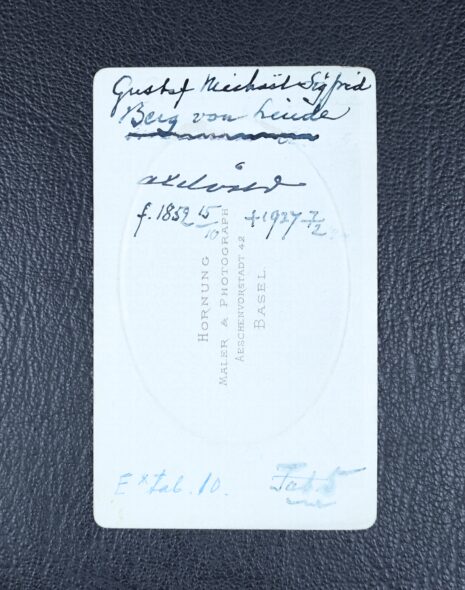 Gustaf Michael Sigfrid
Berg von Linde
f. 1859 15/10 +1927 7/2
HORNUNG
MALER & PHOTOGRAPH
AESCHENVORSTADT 42
BASEL
Ex tab. 10.
Tab 5